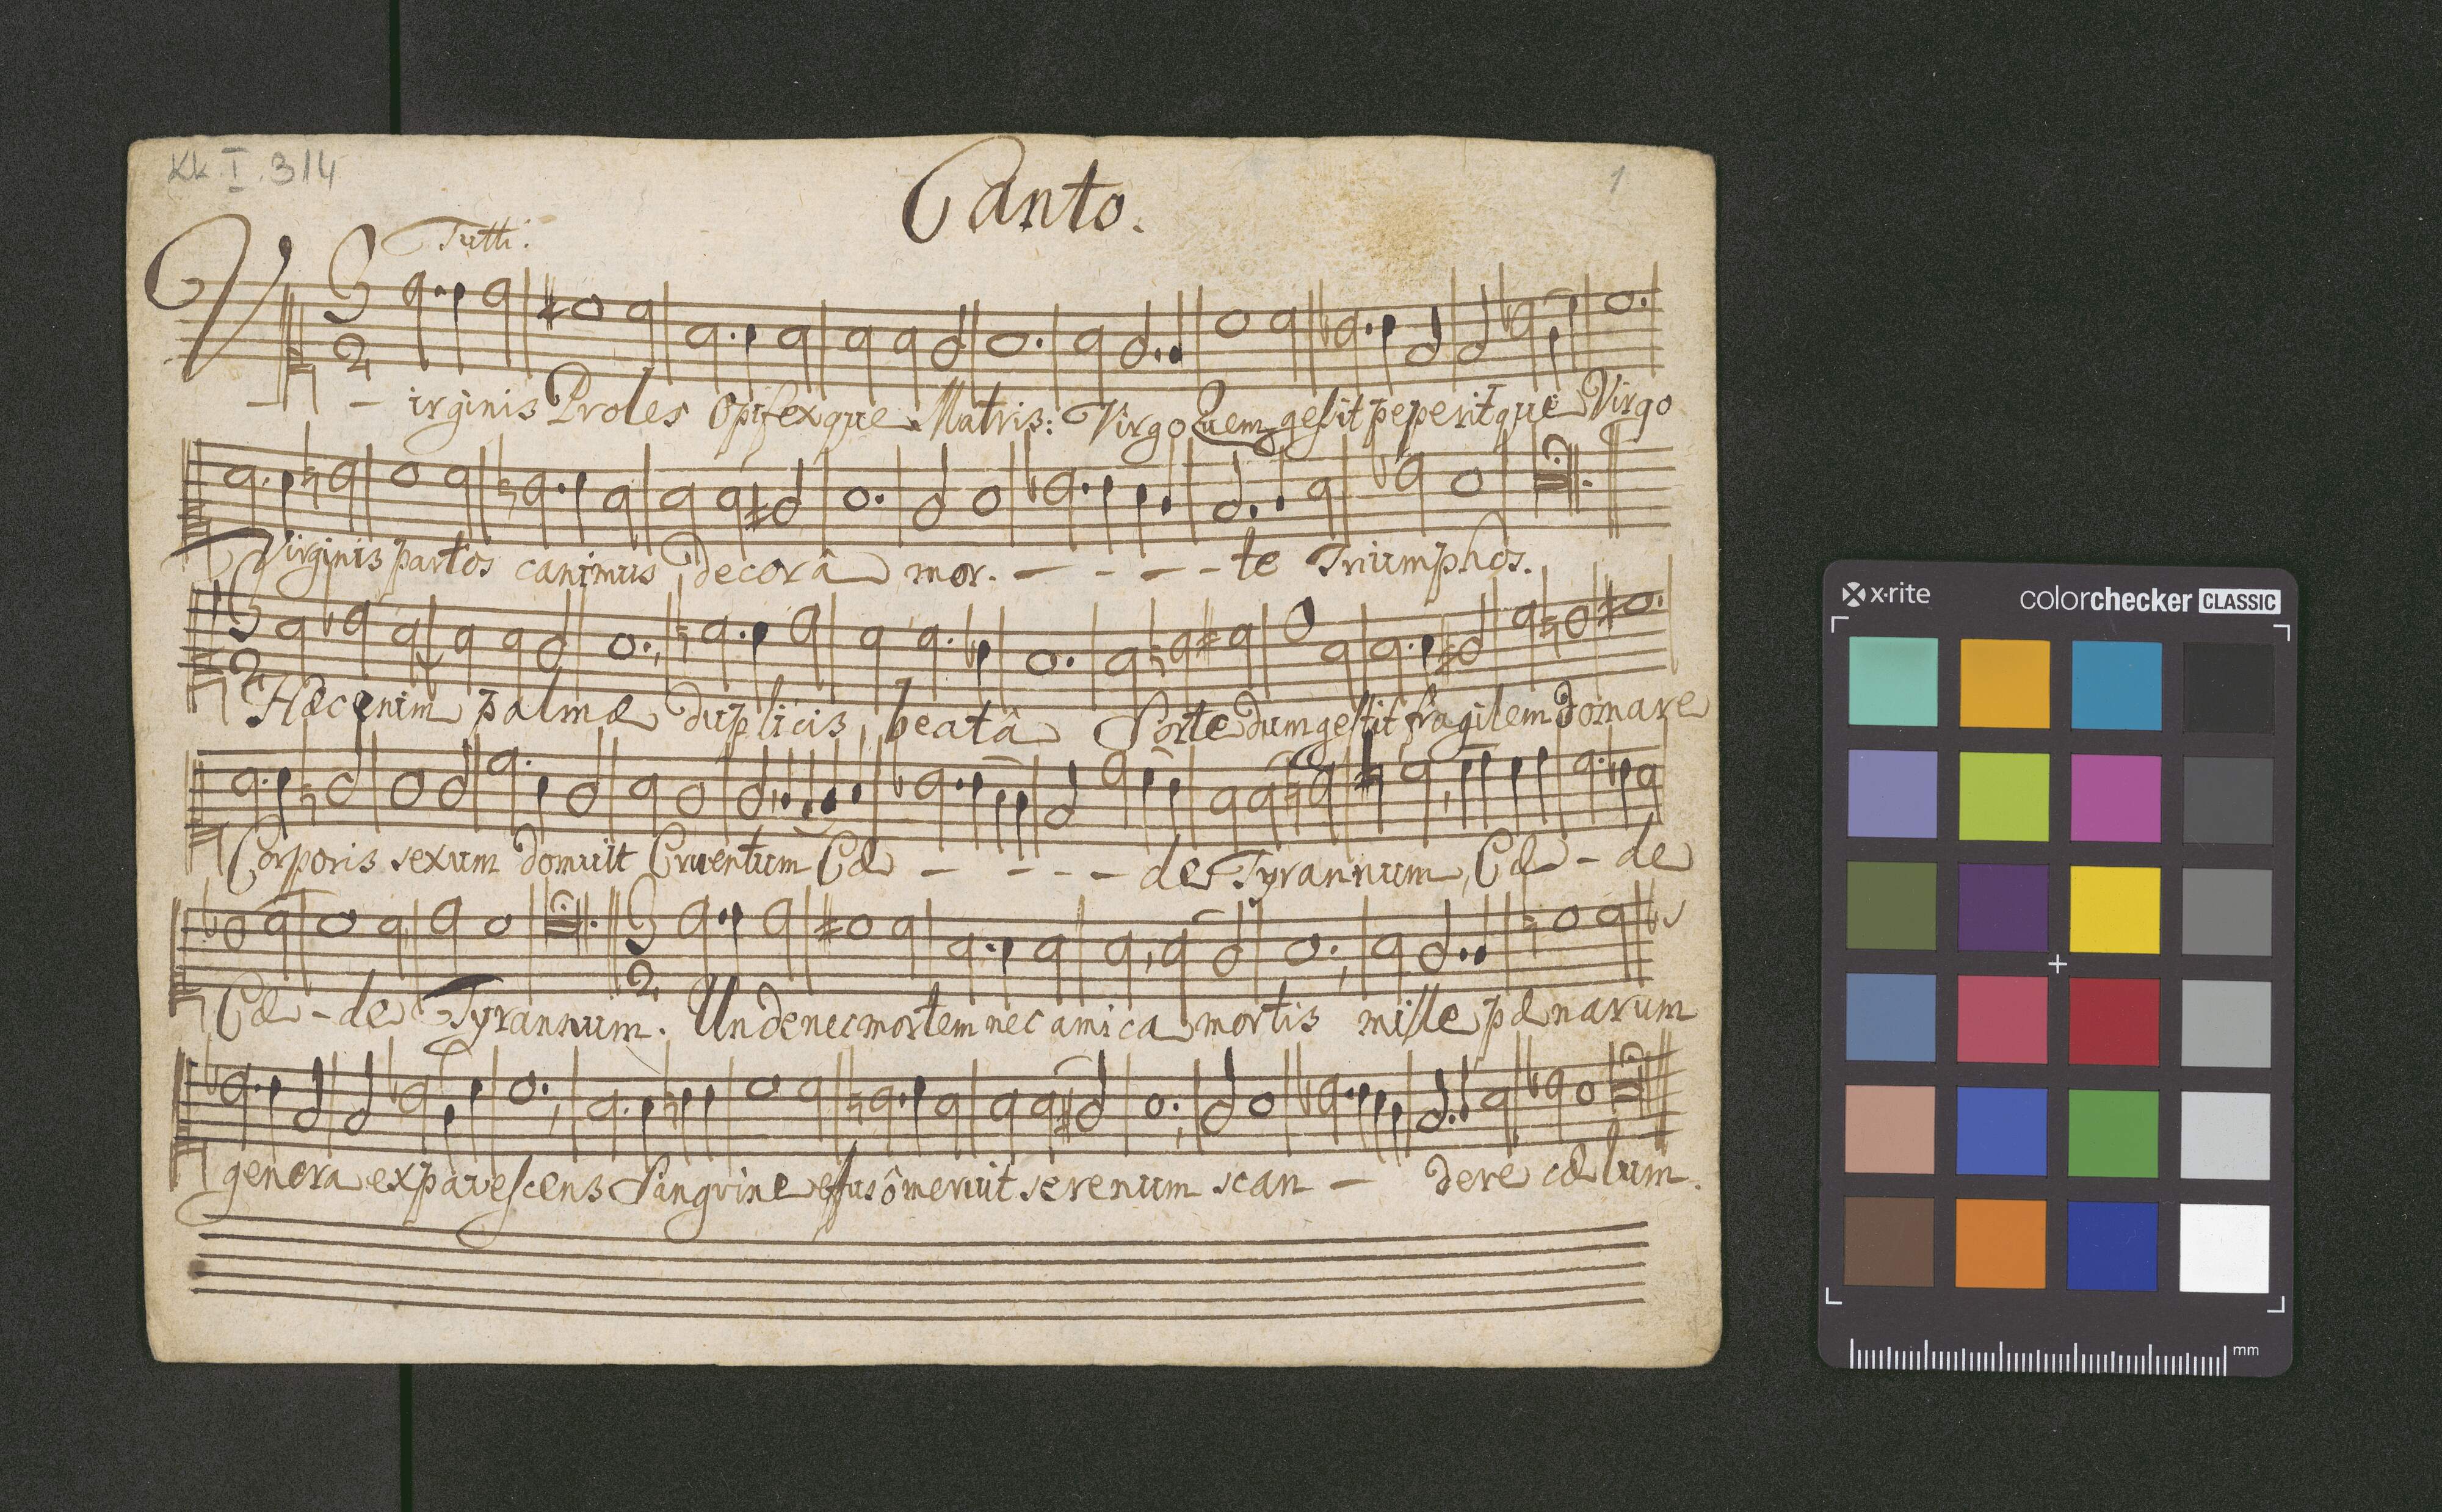 Kk. I. 314
Canto.
1
Tutti.
3
2
Virginis Proles Opifexque Matris: Virgo Quem gesit peperitque Virgo
Virginis partos canimus decorâ mor. - - - - te Triumphos.
3
2
Hæc enim palmæ duplicis beatâ Sorte dum gestit fragilem domare
Corporis sexum domuit Cruentum Cæ - - - - de Tyrannum, Cæ - de
3
2
Cæ - de Tyrannum. Unde nec mortem nec amica mortis mille pænarum
genera expavescens Sanguine effusô meruit serenum scan - dere cælum.
x·rite
colorchecker CLASSIC
mm